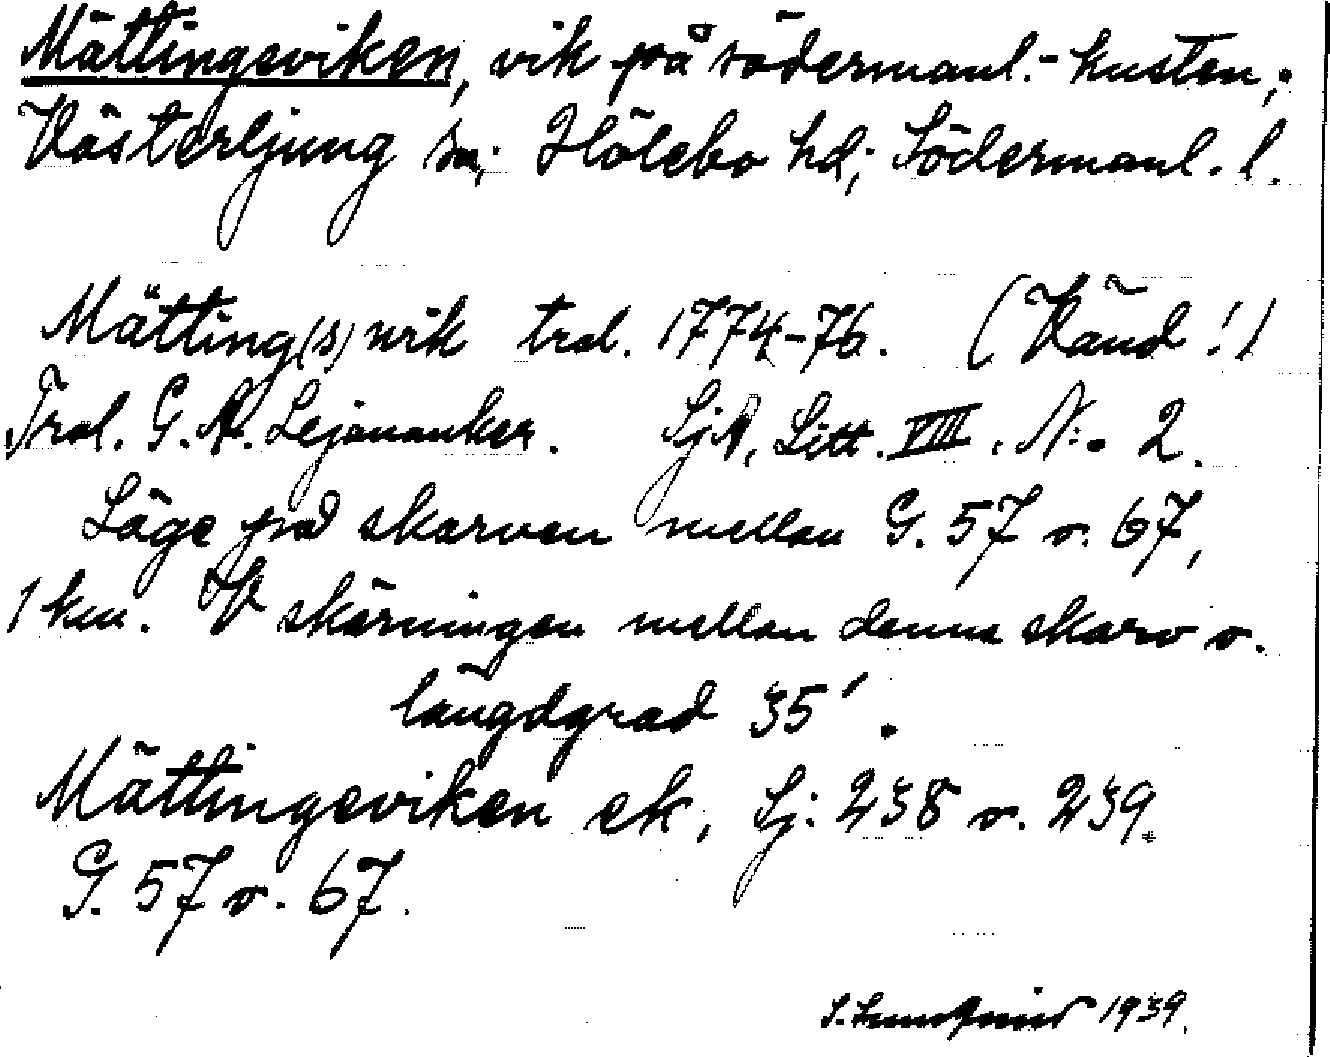 Mättingeviken, vik på södermanl.-kusten;
Västerljung sn; Hölebo hd; Södermanl. l.
Mätting(s)wik trol. 1774-76. (Vänd!)
Trol. G. A. Lejonanker. SjA, Litt. VIII. N:o 2.
Läge på skarven mellan G. 57 o. 67,
1 km. V skärningen mellan denna skarv o.
längdgrad 35′.
Mättingeviken ek, Sj: 238 o. 239.
G. 57 o. 67.
S. 1939.